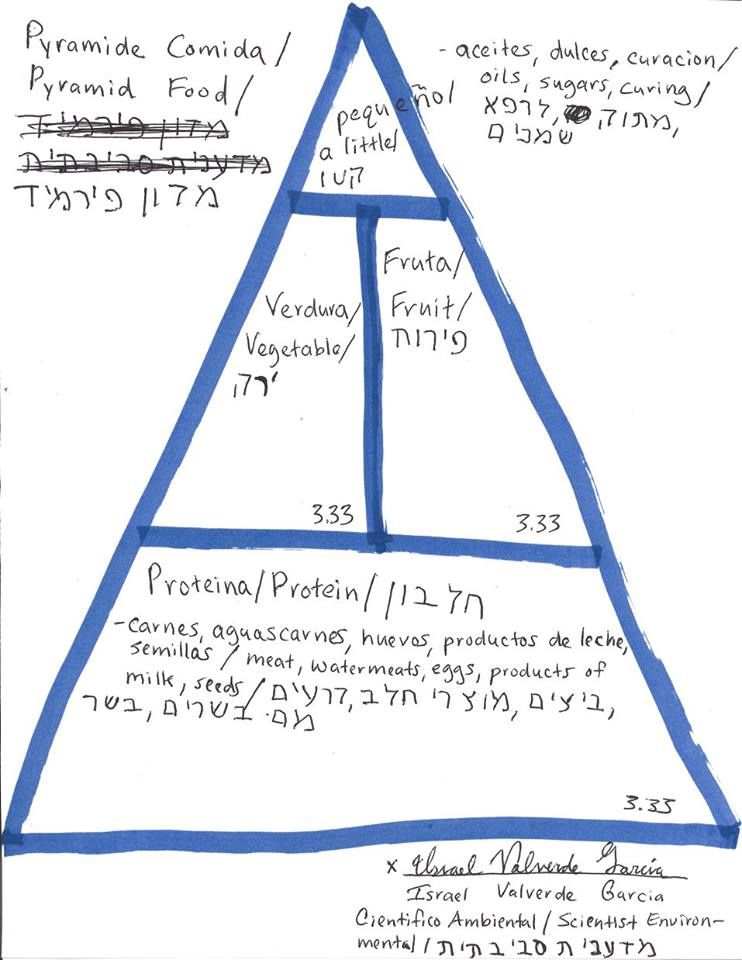 Pyramide Comida/
Pyramid Food/
מזון פירמיד
- aceites, dulces, curacion/
oils, sugars, curing/
מתוק, לרפא,
שמנים
pequeño/
a little/
קטן
Verdura/
Vegetable/
ירק
3.33
Fruta/
Fruit/
פירות
3.33
Proteina/Protein/חלבון
-carnes, aguascarnes, huevos, productos de leche,
semillas / meat, watermeats, eggs, products of
milk, seeds/ ביצים, מוצרי חלב, זרעים,
מם. בשרים, בשר
3.33
x Israel Valverde Garcia
Israel Valverde Garcia
Cientifico Ambiental / Scientist Environ-
mental / מדענית סביבתית